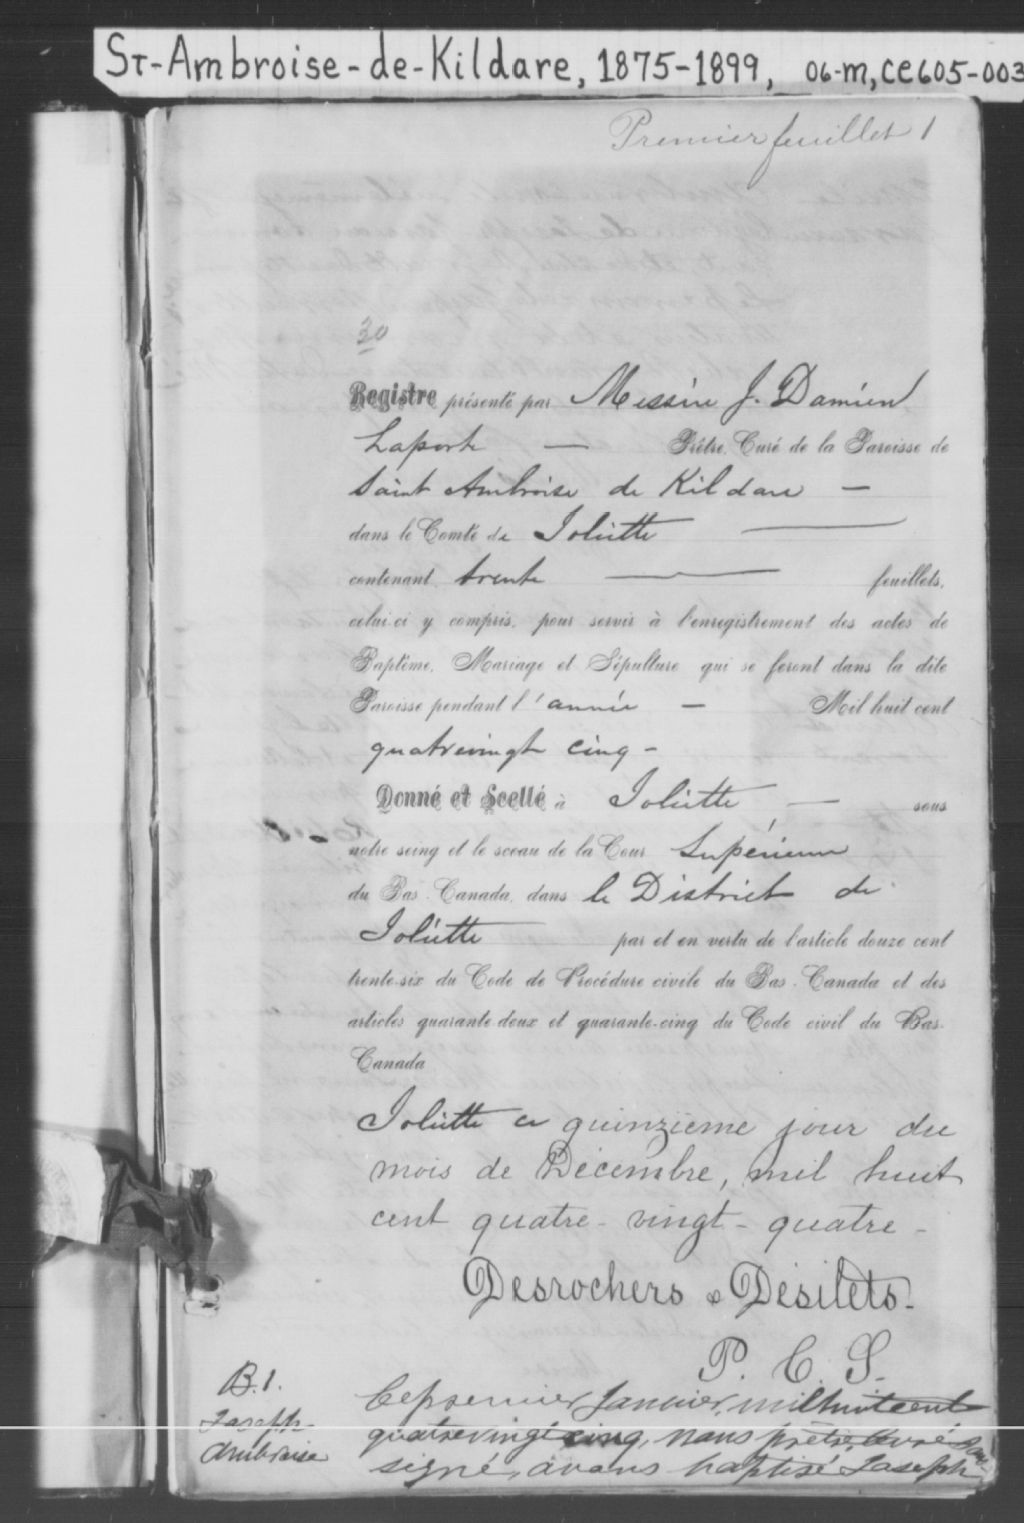 St-Ambroise-de-Kildare, 1875-1899, 06-M, CE605-003
Premier feuillet 1
30
Registre présenté par Messire J. Damien
Laporte — Prêtre, Curé de la Paroisse de
Saint Ambroise de Kildare —
dans le Comté de Joliette —
contenant trente — feuillets,
celui-ci y compris, pour servir à l'enregistrement des actes de
Baptême, Mariage et Sépulture qui se feront dans la dite
Paroisse pendant l'année — Mil huit cent
quatrevingt cinq -
Donné et Scellé à Joliette — sous
notre seing et le sceau de la Cour Supérieure
du Bas-Canada, dans le District de
Joliette par et en vertu de l'article douze cent
trente-six du Code de Procédure civile du Bas-Canada et des
articles quarante-deux et quarante-cinq du Code civil du Bas-
Canada
Joliette ce quinzième jour du
mois de Décembre, mil huit
cent quatre-vingt-quatre -
Desrochers & Désilets
P. C. S.
B.1. Ce premier Janvier, mil huit cent
Joseph- quatrevingt cinq, nous prêtre, curé sous-
Ambroise signé, avons baptisé Joseph